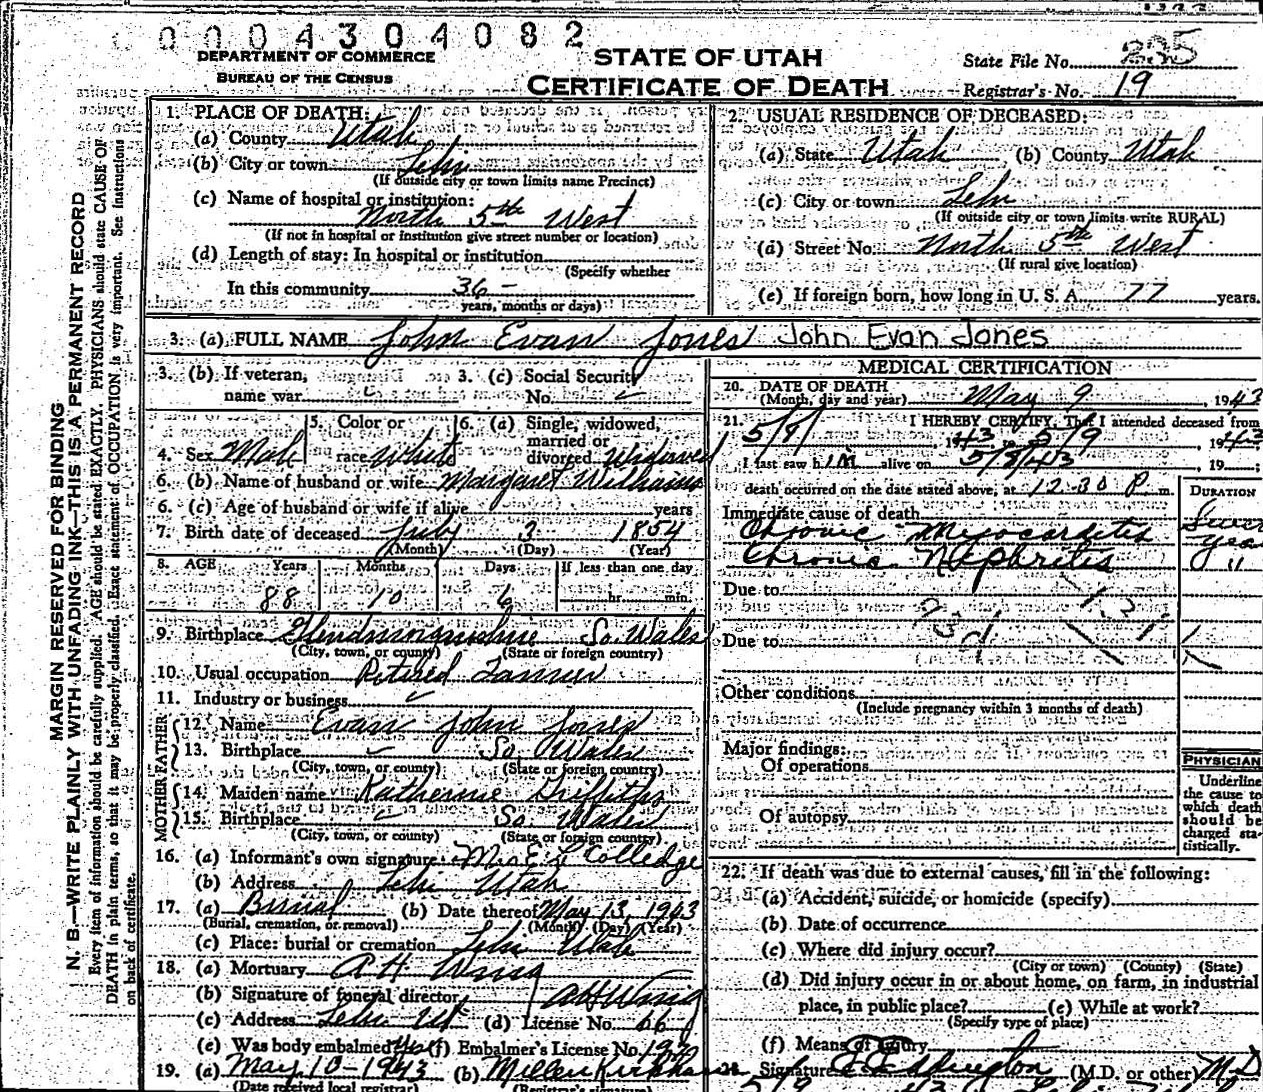 0004304082
DEPARTMENT OF COMMERCE
BUREAU OF THE CENSUS
STATE OF UTAH
CERTIFICATE OF DEATH
State File No. 235
Registrar's No. 19
MARGIN RESERVED FOR BINDING
N. B.—WRITE PLAINLY WITH UNFADING INK—THIS IS A PERMANENT RECORD
Every item of information should be carefully supplied. AGE should be stated EXACTLY. PHYSICIANS should state CAUSE OF
DEATH in plain terms, so that it may be properly classified. Exact statement of OCCUPATION is very important. See instructions
on back of certificate.
1. PLACE OF DEATH:
(a) County Utah
(b) City or town Lehi
(If outside city or town limits name Precinct)
(c) Name of hospital or institution:
North 5th West
(If not in hospital or institution give street number or location)
(d) Length of stay: In hospital or institution
(Specify whether
In this community 36 -
years, months or days)
2. USUAL RESIDENCE OF DECEASED:
(a) State Utah (b) County Utah
(c) City or town Lehi
(If outside city or town limits write RURAL)
(d) Street No. North 5th West
(If rural give location)
(e) If foreign born, how long in U. S. A. 77 years.
3. (a) FULL NAME John Evan Jones John Evan Jones
3. (b) If veteran, name war 3. (c) Social Security No.
4. Sex Male 5. Color or race White 6. (a) Single, widowed, married or divorced Widowed
6. (b) Name of husband or wife Margaret Williams
6. (c) Age of husband or wife if alive years
7. Birth date of deceased July 3 1854
(Month) (Day) (Year)
8. AGE Years Months Days If less than one day
88 10 6 hr. min.
9. Birthplace So. Wales
(City, town, or county) (State or foreign country)
10. Usual occupation Retired Farmer
11. Industry or business
FATHER
12. Name Evan John Jones
13. Birthplace So. Wales
(City, town, or county) (State or foreign country)
MOTHER
14. Maiden name Katherine Griffiths
15. Birthplace So. Wales
(City, town, or county) (State or foreign country)
16. (a) Informant's own signature Mrs E L Colledge
(b) Address Lehi Utah
17. (a) Burial (b) Date thereof May 13, 1943
(Burial, cremation, or removal) (Month) (Day) (Year)
(c) Place: burial or cremation Lehi Utah
18. (a) Mortuary A H Wing
(b) Signature of funeral director A H Wing
(c) Address Lehi Ut (d) License No. 66
(e) Was body embalmed yes (f) Embalmer's License No.
19. (a) May 10-1943 (b)
(Date received local registrar) (Registrar's signature)
MEDICAL CERTIFICATION
20. DATE OF DEATH
(Month, day and year) May 9, 1943
21. I HEREBY CERTIFY, That I attended deceased from
5/8/ 1943 to 5/9 1943
I last saw him alive on 5/8/43, 19 ;
death occurred on the date stated above, at 12:30 P. m.
DURATION
Immediate cause of death
Chronic Myocarditis
Chronic Nephritis "
Due to
93d 131
Due to
Other conditions
(Include pregnancy within 3 months of death)
Major findings:
Of operations
Of autopsy
PHYSICIAN
Underline
the cause to
which death
should be
charged sta-
tistically.
22. If death was due to external causes, fill in the following:
(a) Accident, suicide, or homicide (specify)
(b) Date of occurrence
(c) Where did injury occur?
(City or town) (County) (State)
(d) Did injury occur in or about home, on farm, in industrial
place, in public place? (e) While at work?
(Specify type of place)
(f) Means of Injury
Signature (M.D. or other) M.D.
5/9 43